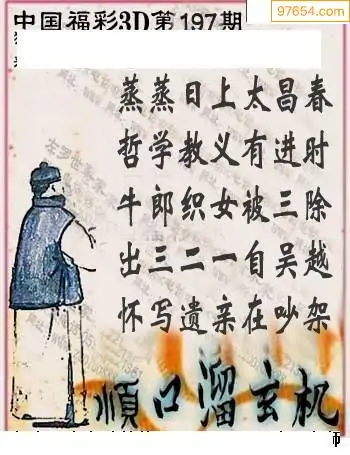 中国福彩3D第197期
97654.com
蒸蒸日上太昌春
哲学教义有进时
牛郎织女被三除
出三二一自吴越
怀写遗亲在吵架
顺口溜玄机